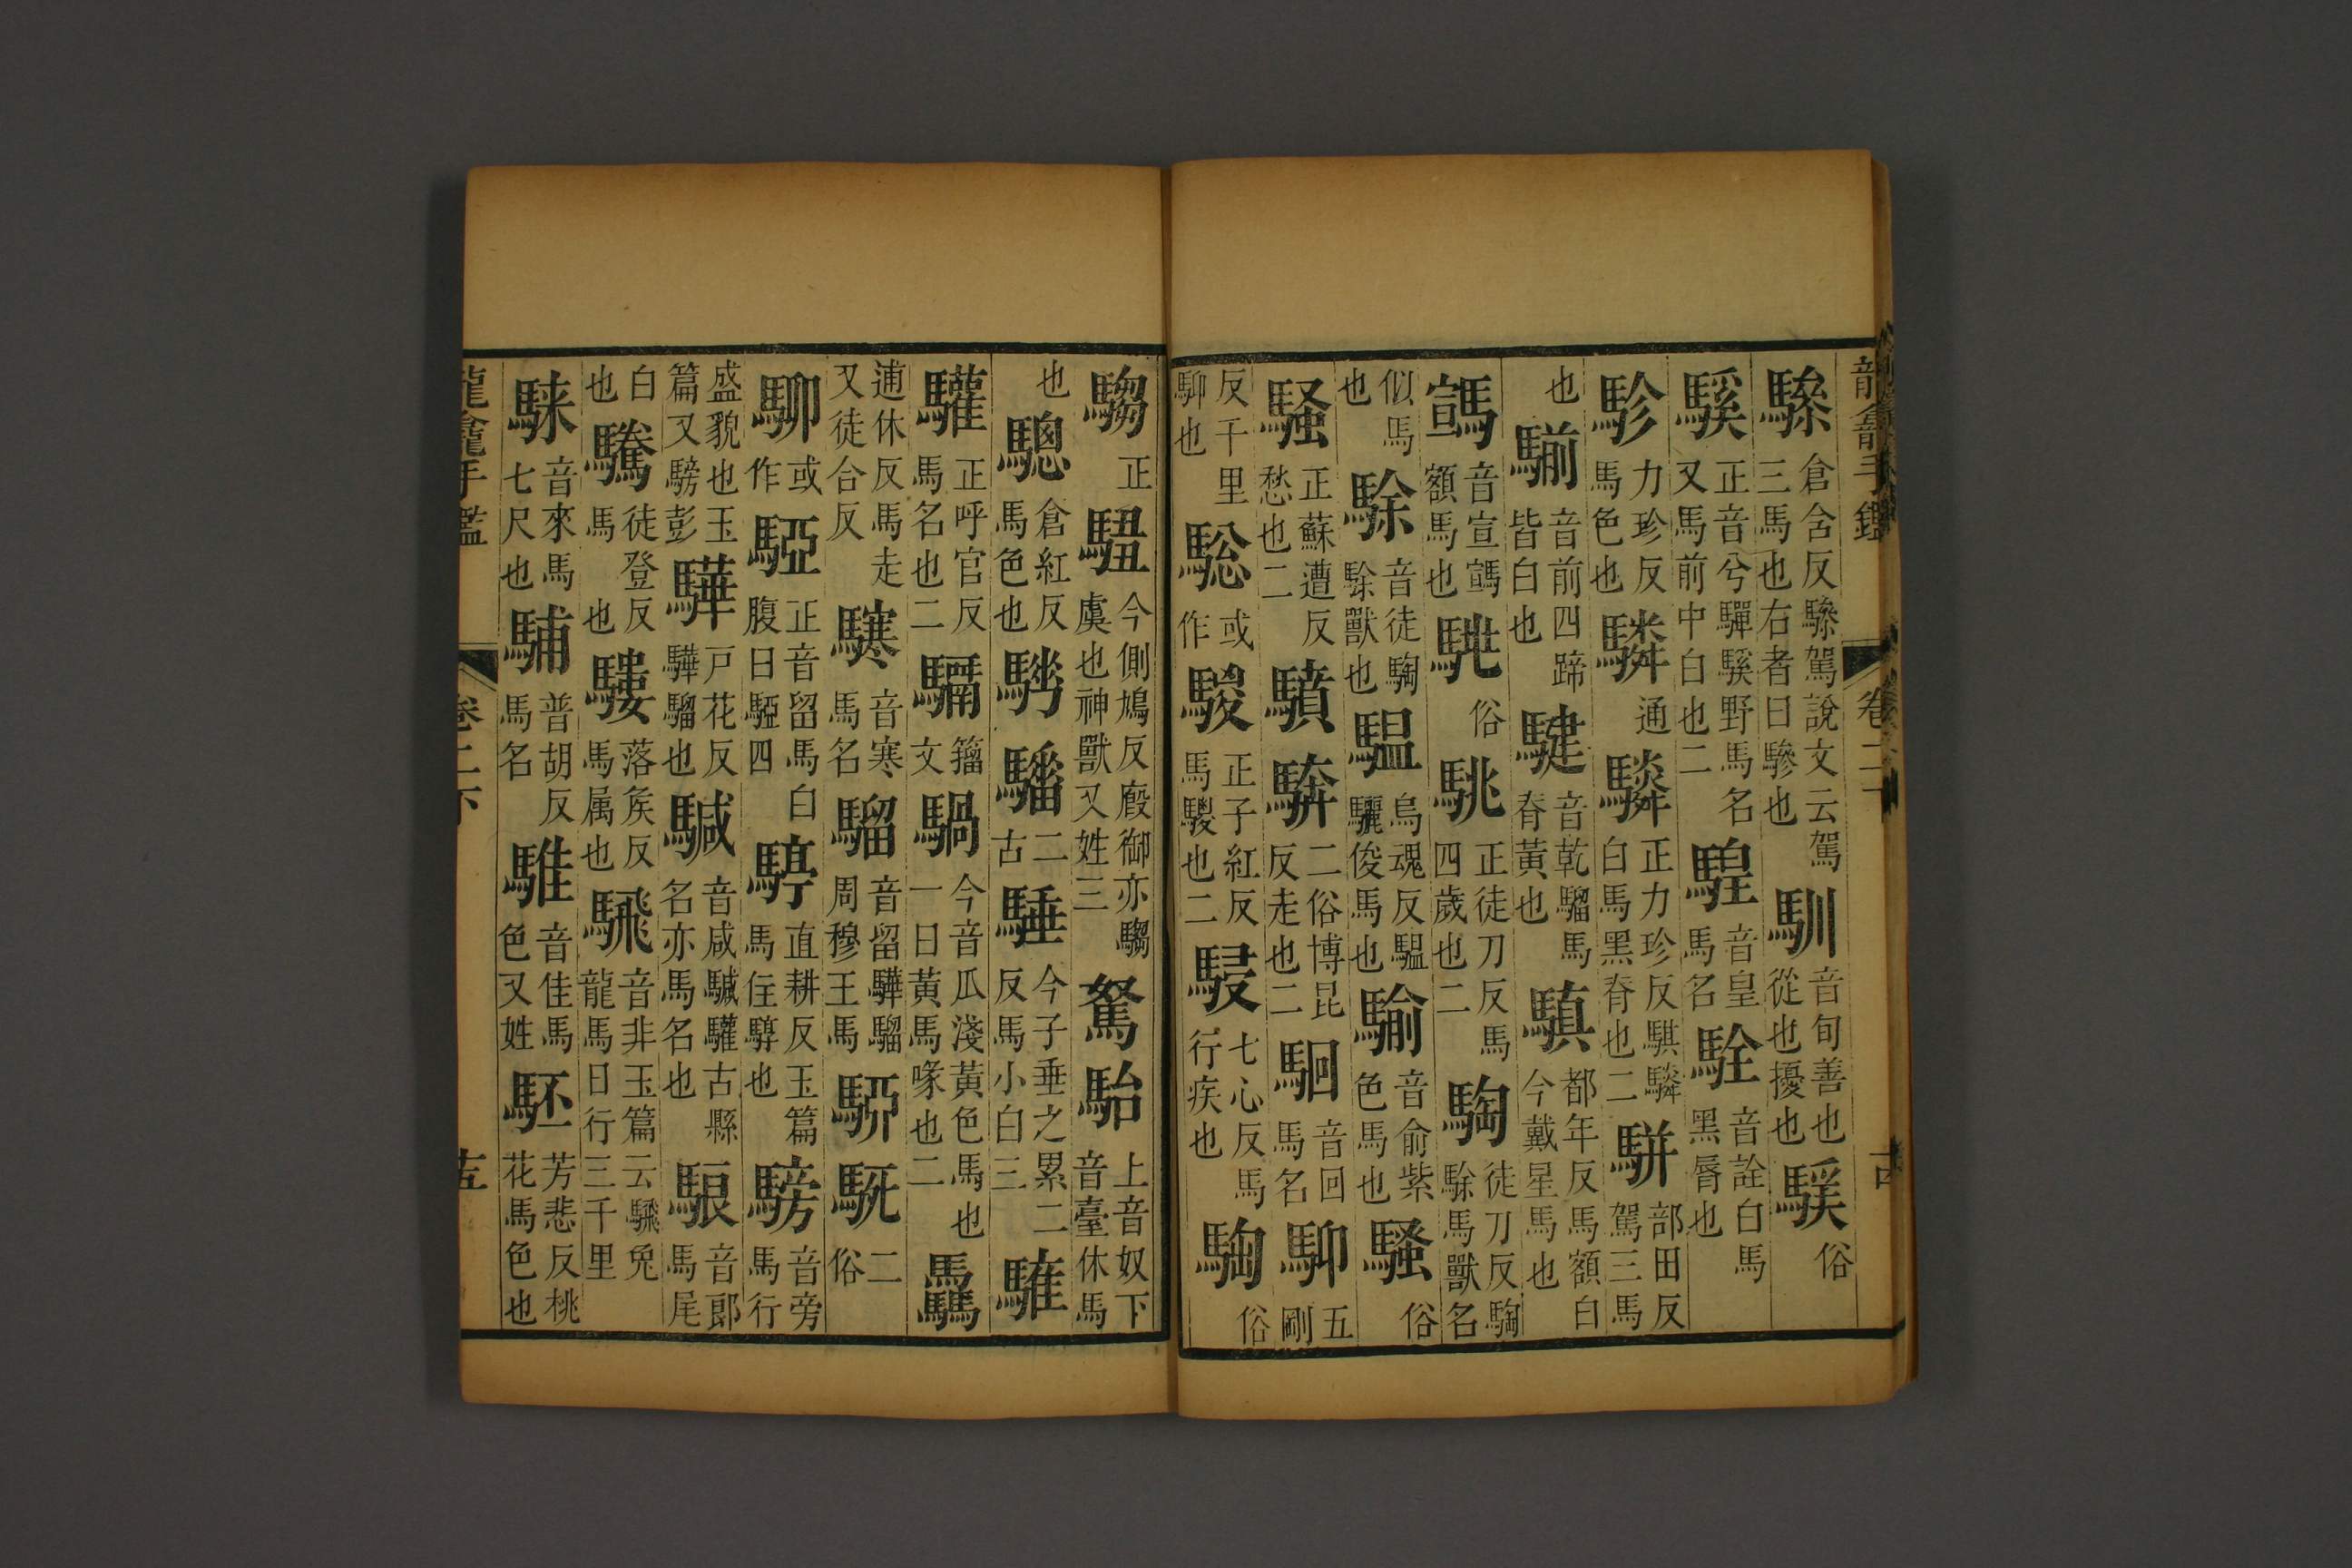 龍龕手鑑 卷二下 十四
驂倉含反驂駕說文云駕三馬也右者曰驂也馴音旬善也從也擾也騱俗
騱正音兮驒騱野馬名又馬前中白也二騜音皇馬名駩音詮白馬黑脣也
駗力珍反馬色也驎通驎正力珍反騏驎白馬黑脊也二駢部田反駕三馬
也騚音前四蹄皆白也騝音乾騮馬脊黃也騏都年反馬額白今戴星馬也
音宣額馬也俗駣正徒刀反馬四歲也二騊徒刀反騊駼馬獸名
似馬也駼音徒騊駼獸也騉烏魂反驪俊馬也騟音俞紫色馬也騷俗
騷正蘇遭反愁也二驞騂二俗博昆反走也二駉音回馬名䭹五剛
反千里䭹也騘或作騣正子紅反馬騣也二駸七心反馬行疾也騊俗
騶正今側鳩反廄御亦騶虞也神獸又姓三駑駘上音奴下音臺休馬
也驄倉紅反馬色也二古今子垂之累二反馬小白三騅
驩正呼官反馬名也二籀文騧今音瓜淺黃色馬也一曰黃馬喙也二驫
逋休反馬走又徒合反音寒馬名騮音留驊騮周穆王馬二俗
或作正音留馬白腹曰四直耕反玉篇馬住也騯音旁馬行
盛貌也玉篇又騯彭驊戶花反驊騮也音咸古縣名亦馬名也音郎馬尾
白也騰徒登反馬也落侯反馬属也音非玉篇云兔龍馬日行三千里
騋音來馬七尺也普胡反馬名騅音隹馬色又姓駓芳悲反桃花馬色也
龍龕手鑑 卷二下 十五